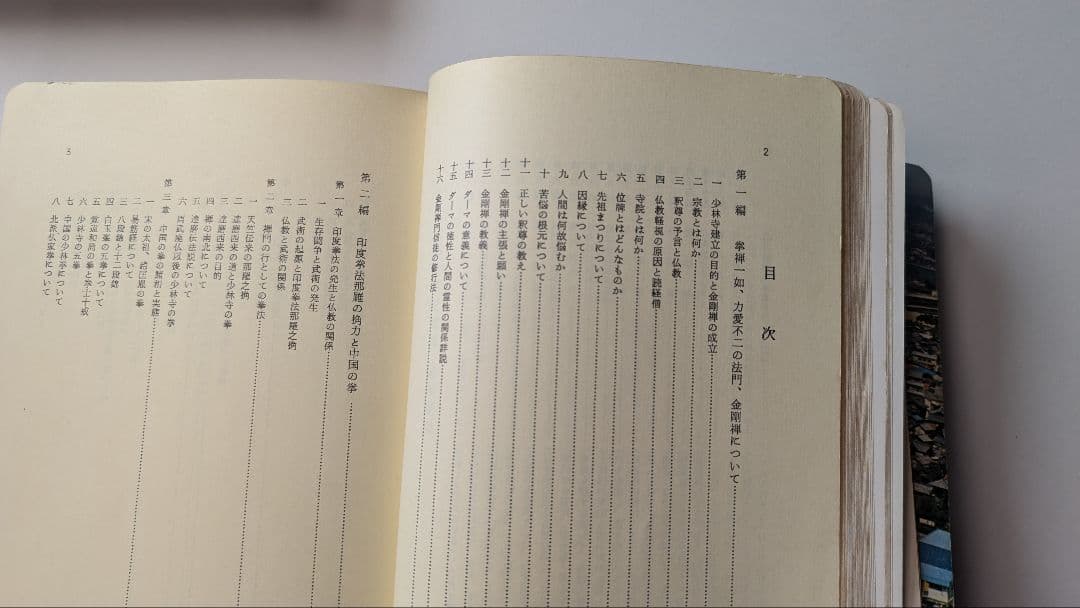 2
目次
第一編 拳禅一如、力愛不二の法門、金剛禅について
一 少林寺建立の目的と金剛禅の成立
二 宗教とは何か
三 釈尊の予言と仏教
四 仏教軽視の原因と読経僧
五 寺院とは何か
六 位牌とはどんなものか
七 先祖まつりについて
八 因縁について
九 人間は何故悩むか
十 苦悩の根元について
十一 正しい釈尊の教え
十二 金剛禅の主張と願い
十三 金剛禅の教義
十四 ダーマの意義について
十五 ダーマの徳性と人間の霊性の関係詳説
十六 金剛禅門信徒の修行法
3
第二編 印度拳法那羅の捔力と中国の拳
第一章 印度拳法の発生と仏教の関係
一 生存闘争と武術の発生
二 武術の起源と印度拳法那羅之捔
三 仏教と武術の関係
第二章 禅門の行としての拳法
一 天竺伝来の那羅之捔
二 達磨西来の目的
三 達磨西来の道と少林寺の拳
四 禅の南北について
五 達磨伝法説について
六 周武廃仏以後の少林寺の拳
第三章 中国の拳の種類と実態
一 宋の太祖、趙匡胤の拳
二 易筋経について
三 八段錦と十二段錦
四 白玉峯の五拳について
五 覚遠和尚の拳と拳士十戒
六 少林寺の五拳
七 中国の少林亭について
八 北派仏家拳について